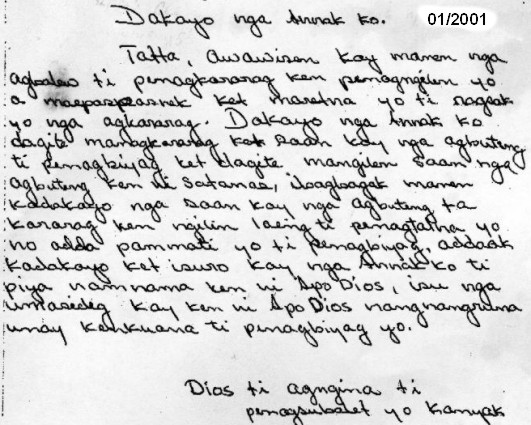 Dakayo nga Annak ko. 01/2001
Tatta, awawisen kay manen nga
ti penagkararag ken penagngilin yo
a ket yo ti
yo nga agkararag. Dakayo nga Annak ko
dagite managkararag ket saan kay nga agbuteng
ti penagbiyag ket dagite mangilin saan nga
agbuteng ken ni Satanas, ibagbagak manen
kadakayo nga saan kay nga agbuteng ta
kararag ken ngilin laeng ti penagtalna yo
no adda pammati yo ti penagbiyag, addaak
kadakayo ket isuro kay nga Annak ko ti
piya namnama ken ni Apo Dios, isu nga
umasedeg kay ken ni Apo Dios nangnangruna
unay kenkuana ti penagbiyag yo.
Dios ti agngina ti
penagsubalet yo kanyak